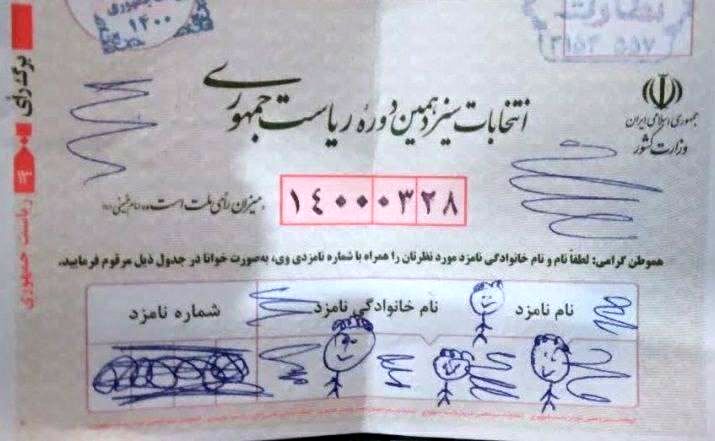 برگ رأی
ریاست جمهوری
۱۴۰۰
نظارت
۲۱۵۴ ۵۵۷
جمهوری اسلامی ایران
وزارت کشور
انتخابات سیزدهمین دوره ریاست جمهوری
میزان رأی ملت است
۱۴۰۰۰۳۲۸
هموطن گرامی: لطفاً نام و نام خانوادگی نامزد مورد نظرتان را همراه با شماره نامزدی وی، به‌صورت خوانا در جدول ذیل مرقوم فرمایید.
نام نامزد
نام خانوادگی نامزد
شماره نامزد